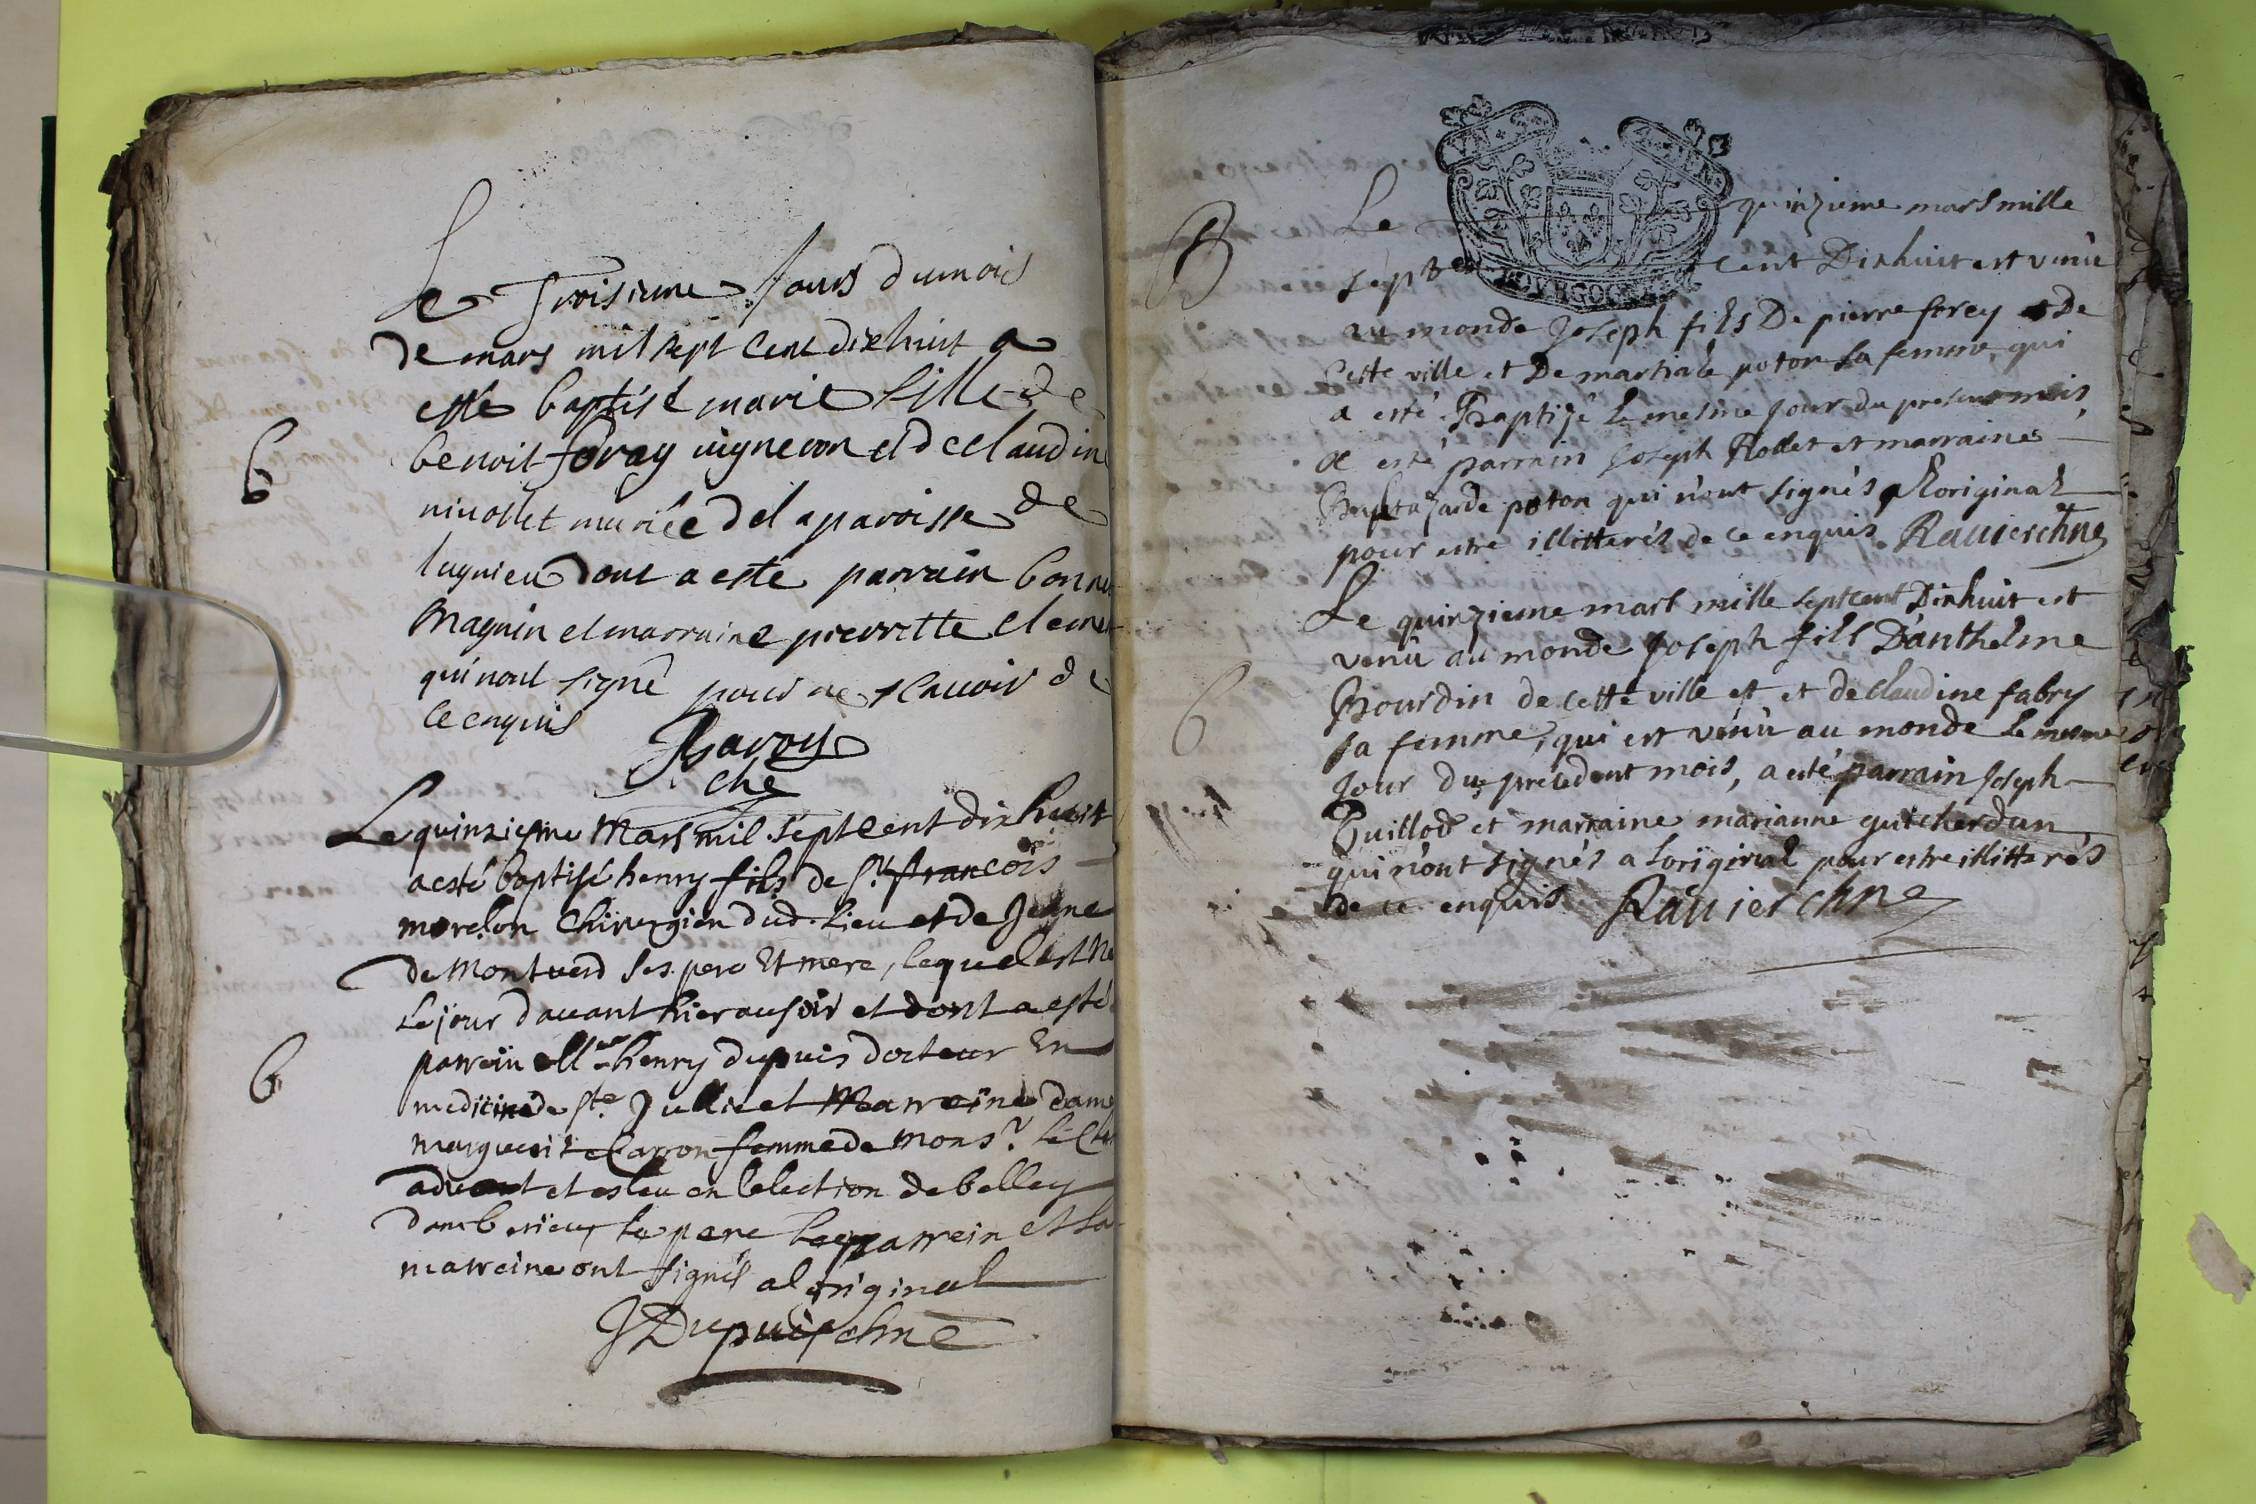 Le Troisieme Jours dumois
de mars mil sept cent dixhuit a
esté baptisé marie fille de
B
benoit foray vigneron et de claudine
nivollet mariée de la paroisse de
lagnieu dont a esté parrain
Magnin et marraine pierrette
qui n'ont signé pour ne sçavoir de
ce enquis
Che
Le quinziesme Mars mil sept cent dix huit
a esté baptisé henry fils de Sr. francois
morelon Chirurgien dud. Lieu et de Jeane
de Montverd ses pere Et mere, lequel est Né
Le jour davant hier au soir et dont a esté
B
parrein henry dupuis docteur En
medicine de Ste. Jullie et Marreine dame
marguerite Carron femme de Monsr.
et esleu en lelection de belley
le pere le parrein et la
marreine ont signés al original
JDupuis chne
VN
BOVRGOGNE
B
Le quinzieme mars mille
sept cent Dixhuit est venû
au monde Joseph fils De pierre forey de
Cette ville et De martiale poton sa femme, qui
a esté Baptizé le mesme Jour du present mois,
a esté parrain Joseph Rollet et marraine
Baltazarde poton qui n'ont signés a Loriginal
pour estre illitterés de ce enquis Ravier chne
Le quinzieme mars mille septcent Dixhuit est
venû au monde Joseph fils D'anthelme
B
Bourdin de cette ville et et de claudine fabry
sa femme, qui est venû au monde le mesme
Jour du precedent mois, a esté parrain Joseph
Guillod et marraine marianne guicherdun
qui n'ont signés a Loriginal pour estre illitterés
de ce enquis Ravier chne